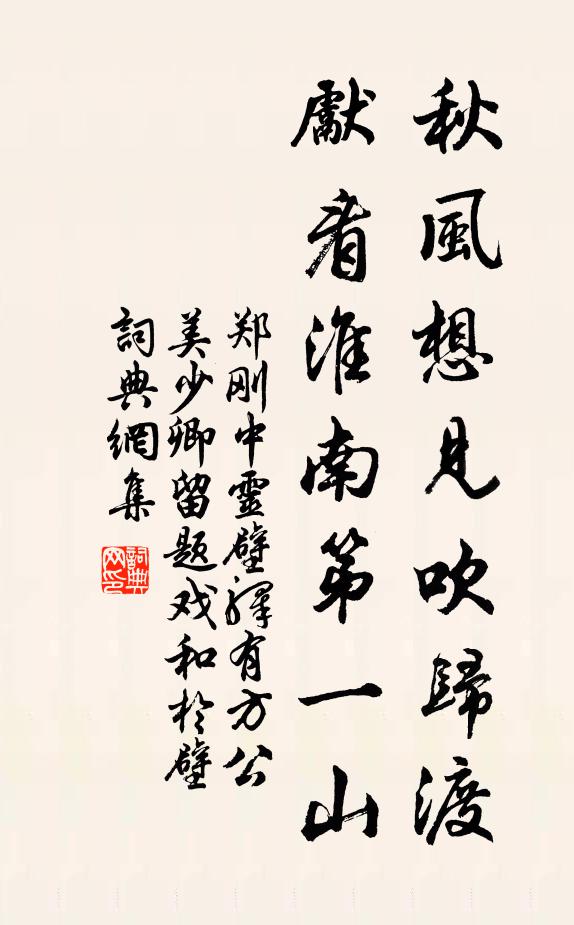 秋風想見吹歸渡
獻看淮南第一山
郑刚中靈壁驛有方公
美少卿留题戏和於壁
詞典網集
詞典网印